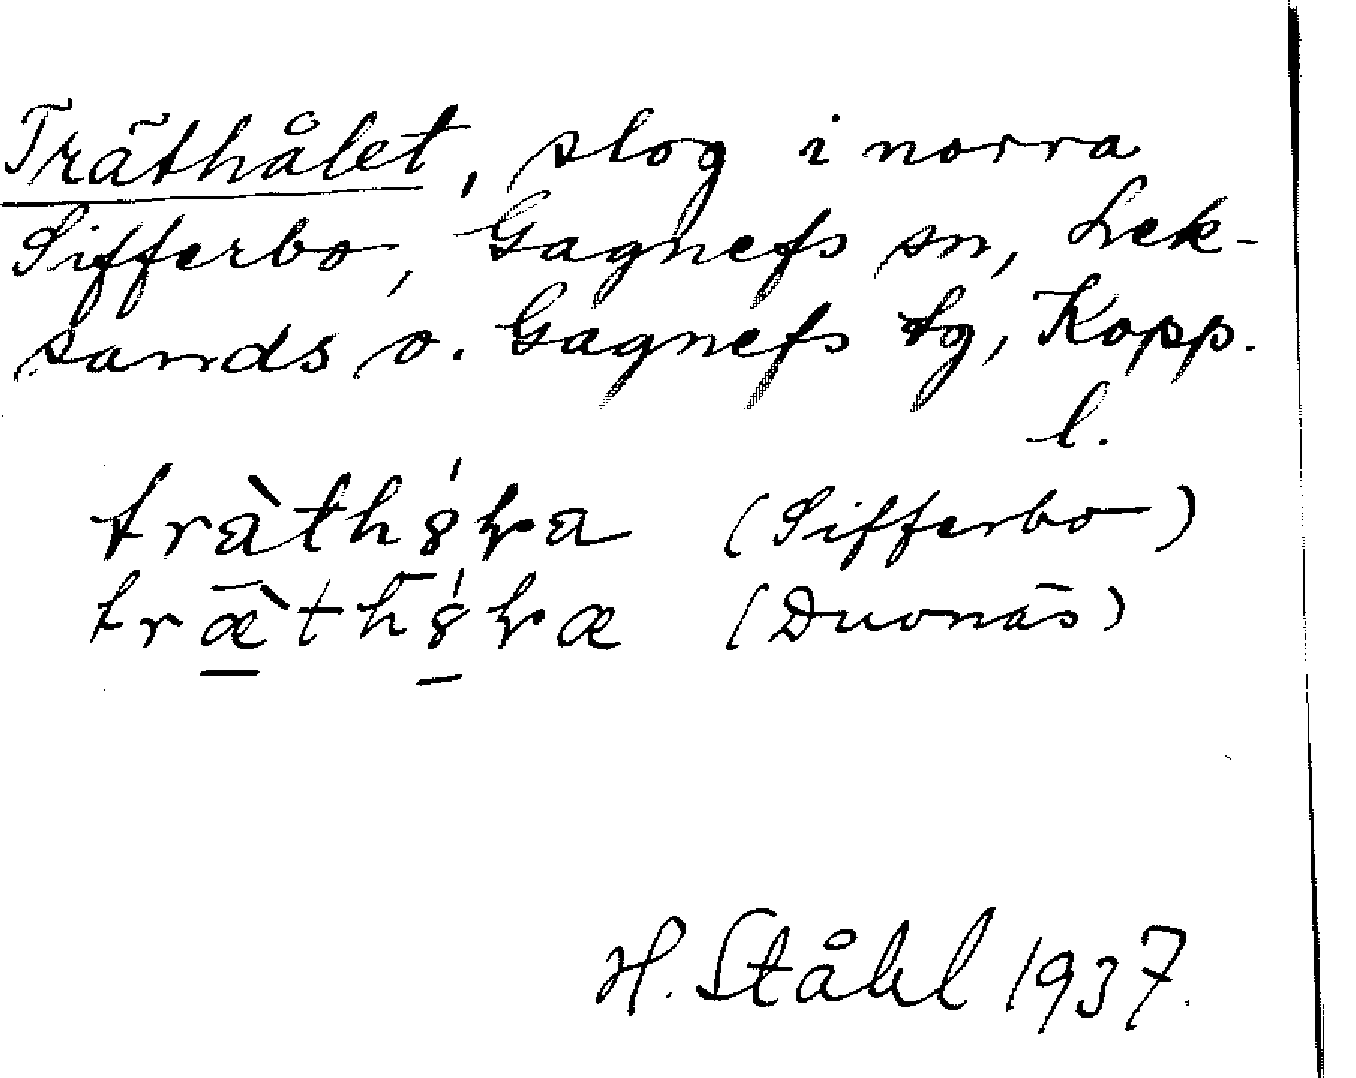 Träthålet, slog i norra
Sifferbo, Gagnefs sn, Lek-
sands o. Gagnefs tg, Kopp.
l.
(Sifferbo)
(Duonäs)
H. Ståhl 1937.